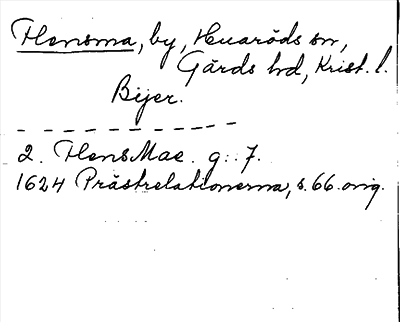 Flensma, by, Huaröds sn,
Gärds hd, Krist. l.
Bijer.
2. FlensMae. g: 7.
1624 Prästrelationerna, s. 66. orig.